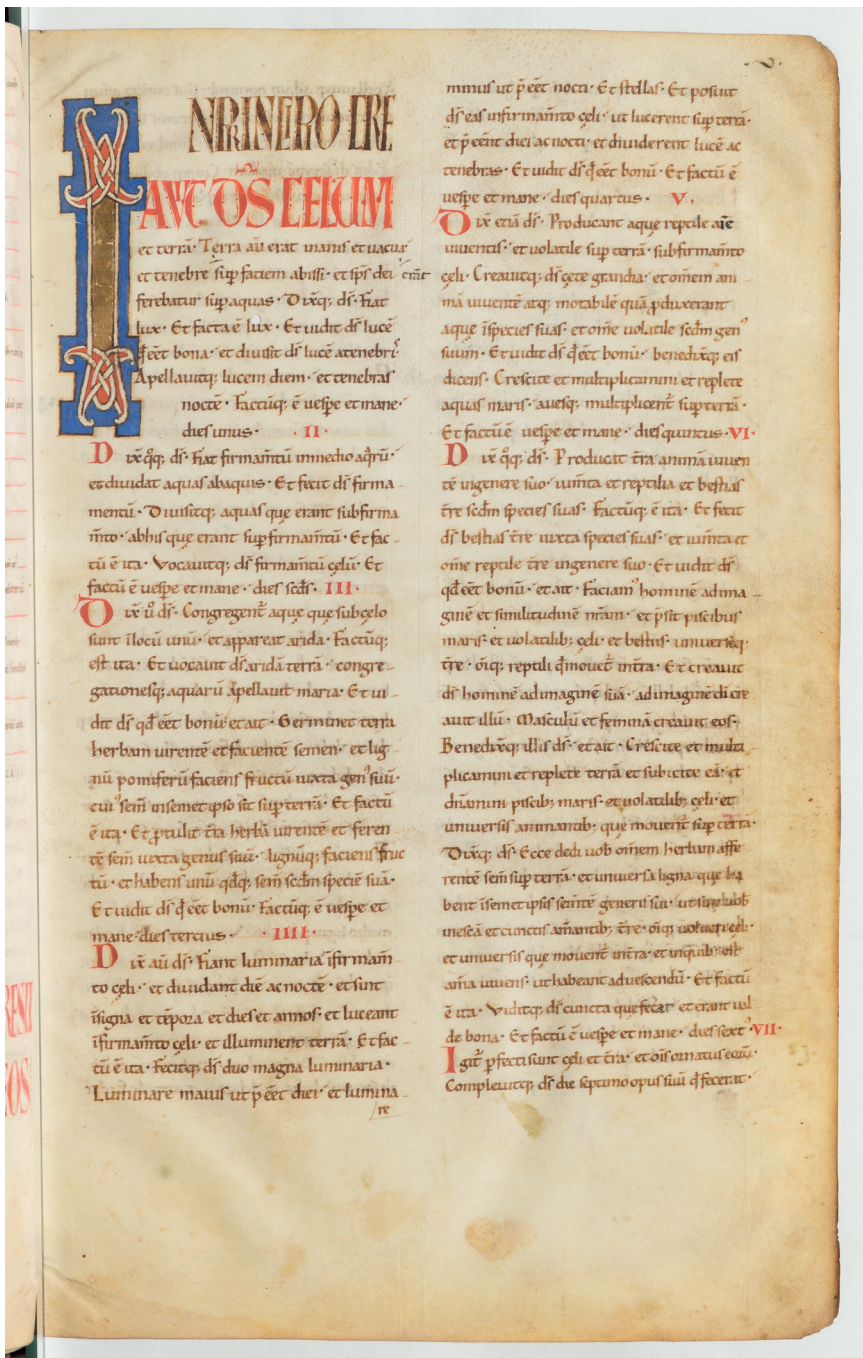 IN PRINCIPIO CRE
AVIT DS CELUM
et terrā. Terra aū erat inanis et vacua
et tenebre sup faciem abissi. et sp̄s dei erat
ferebatur sup aquas. Dixq; dſ. Fiat
lux. Et facta ē lux. Et vidit dſ lucē
q̄ ēēt bona. et divisit dſ lucē a tenebriſ.
Apellavitq; lucem diem. et tenebras
noctē. Factūq; ē vespe et mane.
dies unus. .II.
Dixq̄q; dſ. Fiat firmam̄tū in medio aq̄rū.
et dividat aquas ab aquis. Et fecit dſ firma
mentū. Divisitq; aquas que erant sub firma
m̄to. ab his que erant sup firmam̄tū. Et fac
tū ē ita. Vocavitq; dſ firmam̄tū cęlū. Et
factū ē vespe et mane. dies scd̄s. III.
Dix̄ ū dſ. Congregent̄ aque que sub cęlo
sunt ī locū unū. et appareat arida. Factūq;
est ita. Et vocavit dſ aridā terrā. congre-
gationesq; aquarū apellavit maria. Et vi-
dit dſ qd ēēt bonū. et ait. Germinet terra
herbam virentē et facientē semen. et lig
nū pomiferū faciens fructū iuxta gen' suū.
cui' sem̄ in semetipso sit sup terrā. Et factū
ē ita. Et ꝓtulit t̄ra herbā virentē et feren
tē sem̄ iuxta genus suū. lignūq; faciens fruc
tū. et habens unū qdq; sem̄ scdm speciē suā.
Et vidit dſ q̄ ēēt bonū. Factūq; ē vespe et
mane. dies tercius. .IIII.
Dix̄ aū dſ. Fiant luminaria ī firmam̄
to cęli. et dividant diē ac noctē. et sint
ī signa et tēpora et dies et annos. et luceant
ī firmam̄to cęli. et illuminent terrā. Et fac-
tū ē ita. Fecitq; dſ duo magna luminaria.
Luminare maius ut p̄ēēt diei. et lumina
re
minus ut p̄ēēt nocti. Et stellas. Et posuit
dſ eas in firmam̄to cęli. ut lucerent sup terrā.
et p̄ēent diei ac nocti. et dividerent lucē ac
tenebras. Et vidit dſ q̄ ēēt bonū. Et factū ē
vespe et mane. dies quartus. V.
Dix̄ etiā dſ. Producant aque reptile aīe
viventis. et volatile sup terrā. sub firmam̄to
cęli. Creavitq; dſ cęte grandia. et om̄em ani
mā viventē atq; motabilē quā ꝓduxerant
aque ī species suas. et om̄e volatile scdm gen'
suum. Et vidit dſ q̄ ēēt bonū. benedix̄q; eis
dicens. Crescite et multiplicamini et replete
aquas maris. avesq; multiplicent̄ sup terrā.
Et factū ē vespe et mane. dies quintus. VI.
Dix̄ q̄q; dſ. Producat t̄ra animā viven
tē in genere suo. iumta et reptilia et bestias
t̄re scdm species suas. Factūq; ē ita. Et fecit
dſ bestias t̄re iuxta species suas. et iumta et
om̄e reptile t̄re in genere suo. Et vidit dſ
qd ēēt bonū. et ait. Faciam' hominē ad ima
ginē et similitudinē nr̄am. et p̄sit piscibus
maris. et volatilib; cęli. et bestiis. universęq;
t̄re. oīq; reptili q̄ movet̄ in t̄ra. Et creavit
dſ hominē ad imaginē suā. ad imaginē di cre
avit illū. Masculū et feminā creavit eos.
Benedix̄q; illis dſ. et ait. Crescite et multi
plicamini et replete terrā et subicite eā. et
dn̄amini piscib; maris. et volatilib; cęli. et
universis animantib; que movent̄ sup terra.
Dix̄q; dſ. Ecce dedi vob om̄em herbam affe
rentē sem̄ sup terrā. et universa ligna que ha
bent ī semetipsis sem̄tē generis sui. ut sint vob
in escā et cunctis am̄antib; t̄re. oīq; volucri cęli.
et universis que movent̄ in t̄ra. et in quib; est
am̄a vivens. ut habeant ad vescendū. Et factū
ē ita. Viditq; dſ cuncta que fecat. et erant val
de bona. Et factū ē vespe et mane. dies sext'. VII.
Igit̄ ꝑfecti sunt cęli et t̄ra. et oīs ornatus eorū.
Complevitq; dſ die septimo opus suū q̄ fecerat.